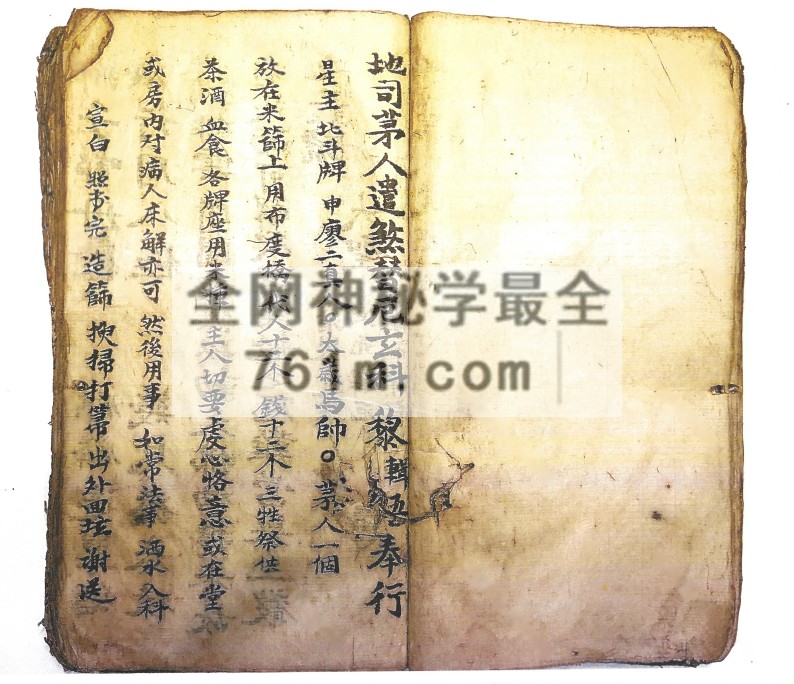 地司茅人遣煞 厄玄科 黎 奉行
星主 北斗牌 申廖二真人○ 馬帥○ 茅人一個
放在米篩上 用布度橋 代人十二个 錢十二个 三牲祭供
茶酒 血食 各牌座用米 主人切要虔心恪意 或在堂
或房內对病人床解亦可 然後用事 如常法事 洒水入科
宣白 照 完 造篩 掃打 出外 謝送
全网神秘学最全
761m.com